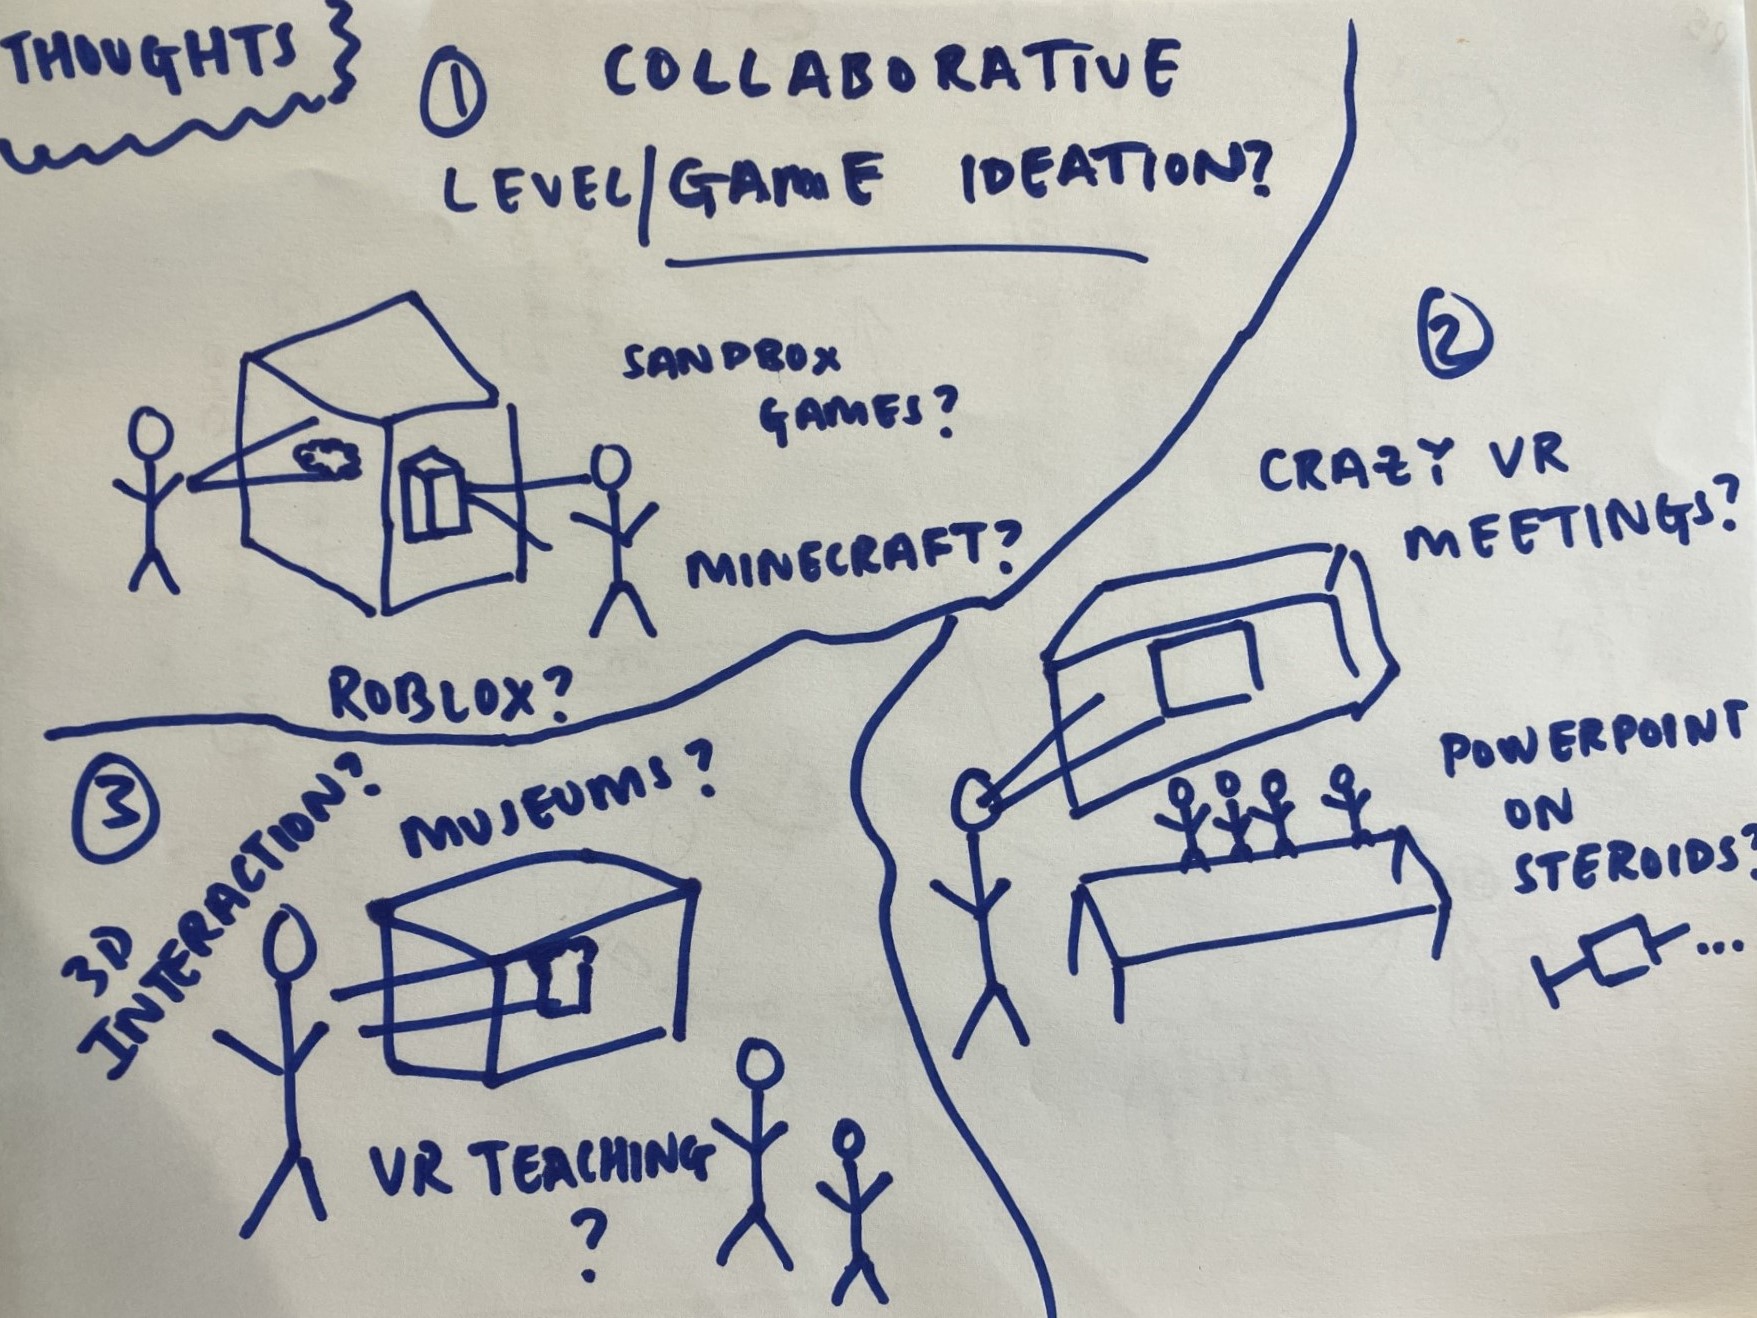 THOUGHTS
① COLLABORATIVE
LEVEL/GAME IDEATION?
SANDBOX
GAMES?
MINECRAFT?
ROBLOX?
②
CRAZY VR
MEETINGS?
POWERPOINT
ON
STEROIDS?
...
③
3D
INTERACTION?
MUSEUMS?
VR TEACHING
?